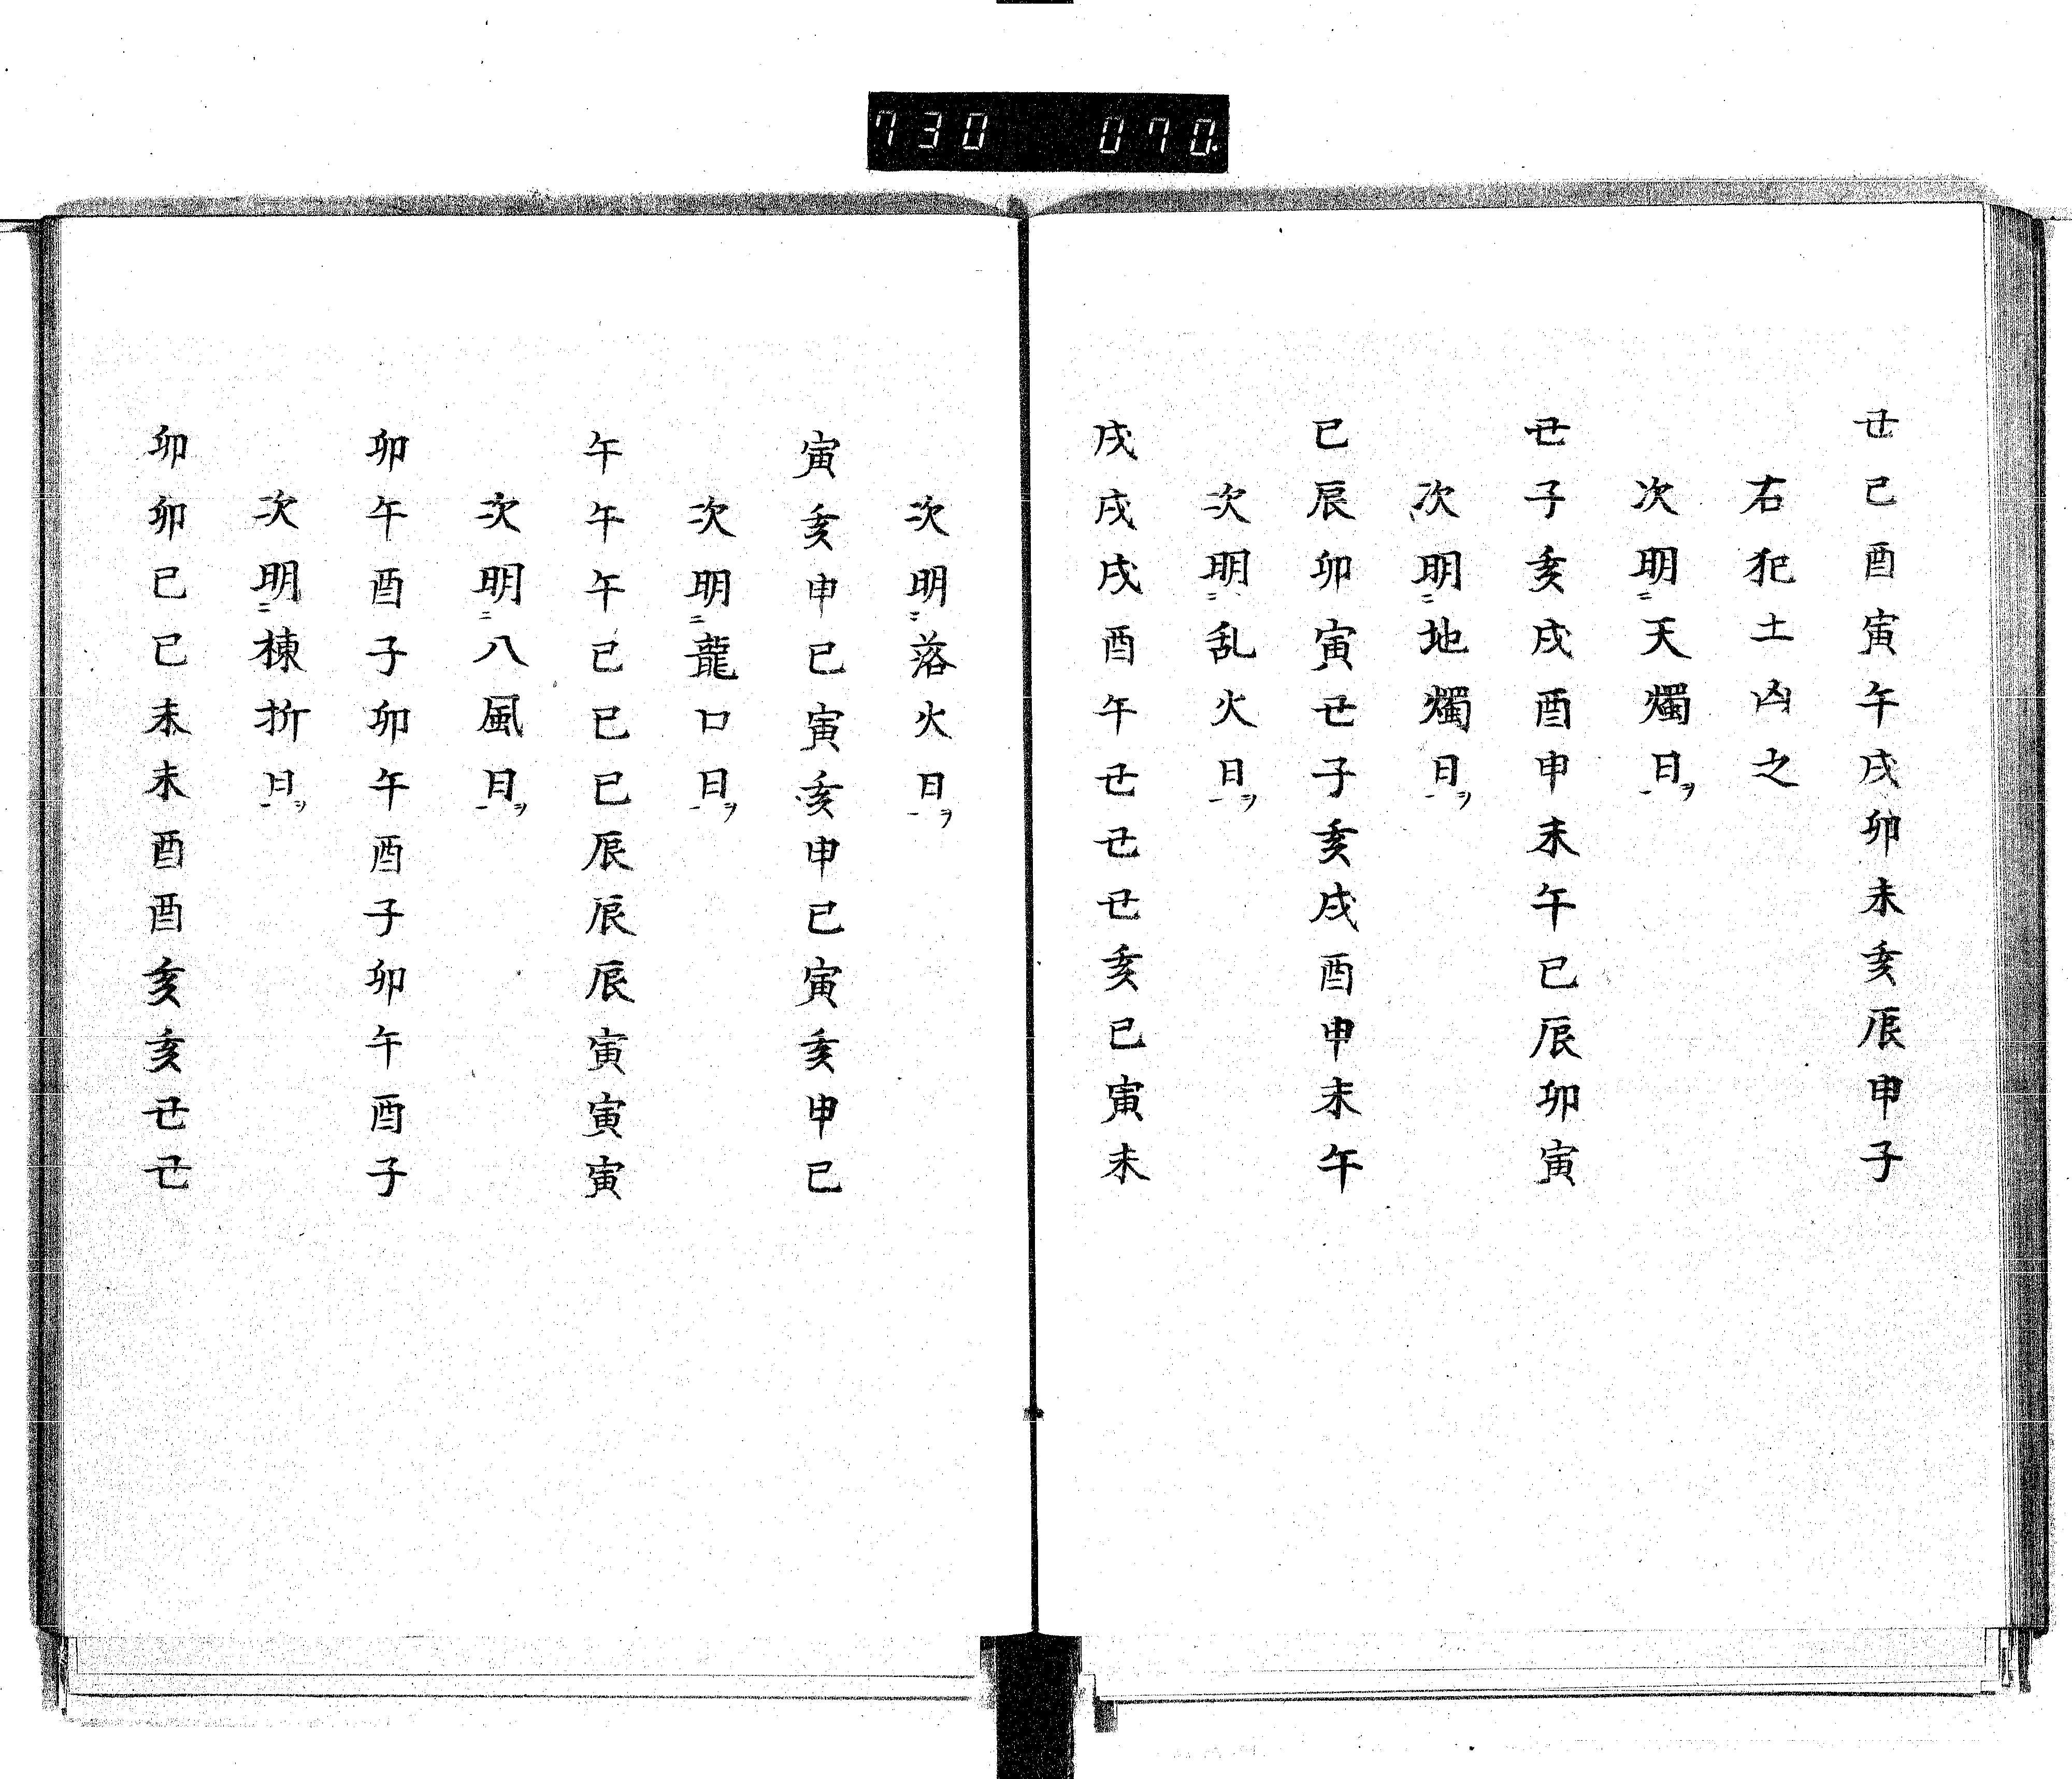 730 070
丑巳酉寅午戌卯未亥辰申子
右犯土凶之
次明二天燭日一ヲ
丑子亥戌酉申未午巳辰卯寅
次明二地燭日一ヲ
巳辰卯寅丑子亥戌酉申未午
次明二乱火日一ヲ
戌戌戌酉午丑丑丑亥巳寅未
次明二落火日一ヲ
寅亥申巳寅亥申巳寅亥申巳
次明二龍口日一ヲ
午午午巳巳巳辰辰辰寅寅寅
次明二八風日一ヲ
卯午酉子卯午酉子卯午酉子
次明二棟折日一ヲ
卯卯巳巳未未酉酉亥亥丑丑